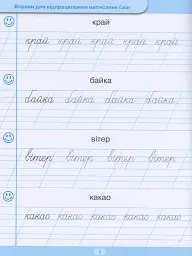 Вправи для відпрацювання написання слів
край
край край край край край
байка
байка байка байка байка
вітер
вітер вітер вітер вітер вітер
какао
какао какао какао какао какао какао